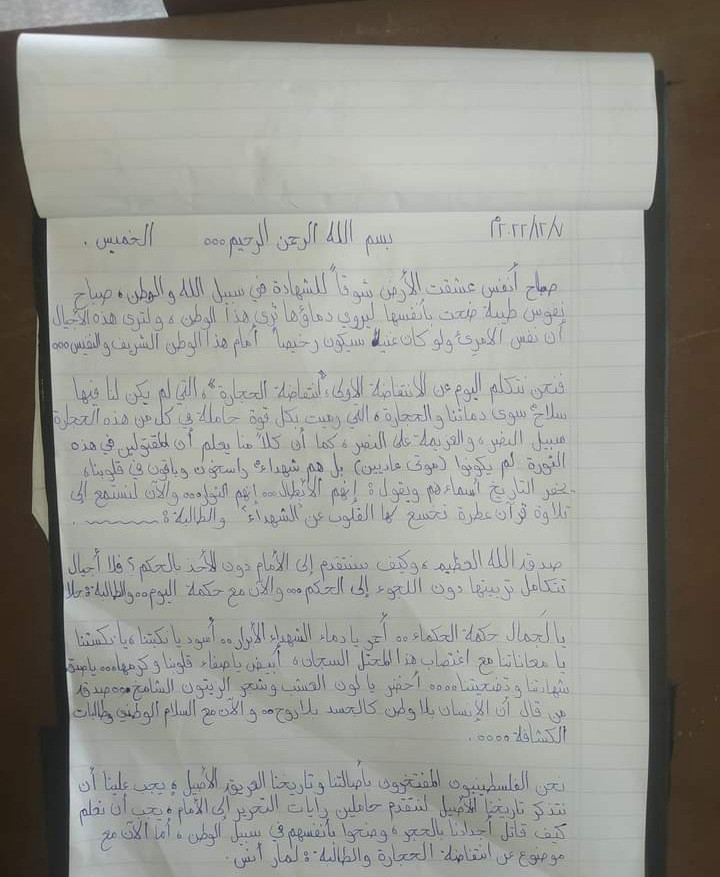 ٢٠٢٢/١٢/٧م بسم الله الرحمن الرحيم ٠٠٠ الخميس .
صباح أنفس عشقت الأرض شوقاً للشهادة في سبيل الله والوطن، صباح
نفوس طيبة ضحت بأنفسها ليروي دماؤها ثرى هذا الوطن، ولترى هذه الأجيال
أن نفس الامرئ ولو كان سيكون رخيصاً أمام هذا الوطن الشريف والنفيس٠٠٠
فنحن نتكلم اليوم عن الانتفاضة الاولى، "انتفاضة الحجارة"، التي لم يكن لنا فيها
سلاح سوى دمائنا والحجارة، التي رميت بكل قوة حاملة في كل من هذه الحجارة
سبيل النصر، والعزيمة على النصر، كما أن كلاً منا يعلم أن المقتولين في هذه
الثورة لم يكونوا (موتى عاديين) بل هم شهداء راسخون وباقون في قلوبنا،
يحفر التاريخ أسماءهم ويقول: إنهم الأبطال٠٠٠ إنهم الثوار٠٠٠ والآن لنستمع إلى
تلاوة قرآن عطرة تخشع لها القلوب عن "الشهداء" والطالبة:
صدق الله العظيم، وكيف سنتقدم إلى الأمام دون الأخذ بالحكم؟ فلا أجيال
تتكامل تربيتها دون اللجوء إلى الحكم٠٠ والآن مع حكمة اليوم٠٠ والطالبة:
يا لجمال حكمة الحكماء٠٠ أحمر يا دماء الشهداء الأبرار٠٠ أسود يا نكبتنا، يا نكستنا
يا معاناتنا مع اغتصاب هذا المحتل السجان، أبيض يا صفاء قلوبنا وكرمها٠٠٠ يا صدق
شهادتنا وتضحيتنا٠٠٠٠ أخضر يا لون العشب وشجر الزيتون الشامخ٠٠٠ صدق
من قال أن الإنسان بلا وطن كالجسد بلا روح٠٠ والآن مع السلام الوطني وطالبات
الكشافة٠٠٠٠ .
نحن الفلسطينيون المفتخرون بأصالتنا وتاريخنا العريق الأصيل، يجب علينا أن
نتذكر تاريخنا الأصيل لنتقدم حاملين رايات التحرير إلى الأمام، يجب أن نعلم
كيف قاتل أجدادنا بالحجر، وضحوا بأنفسهم في سبيل الوطن، أما الآن مع
موضوع عن انتفاضة الحجارة والطالبة: لمار أنس.